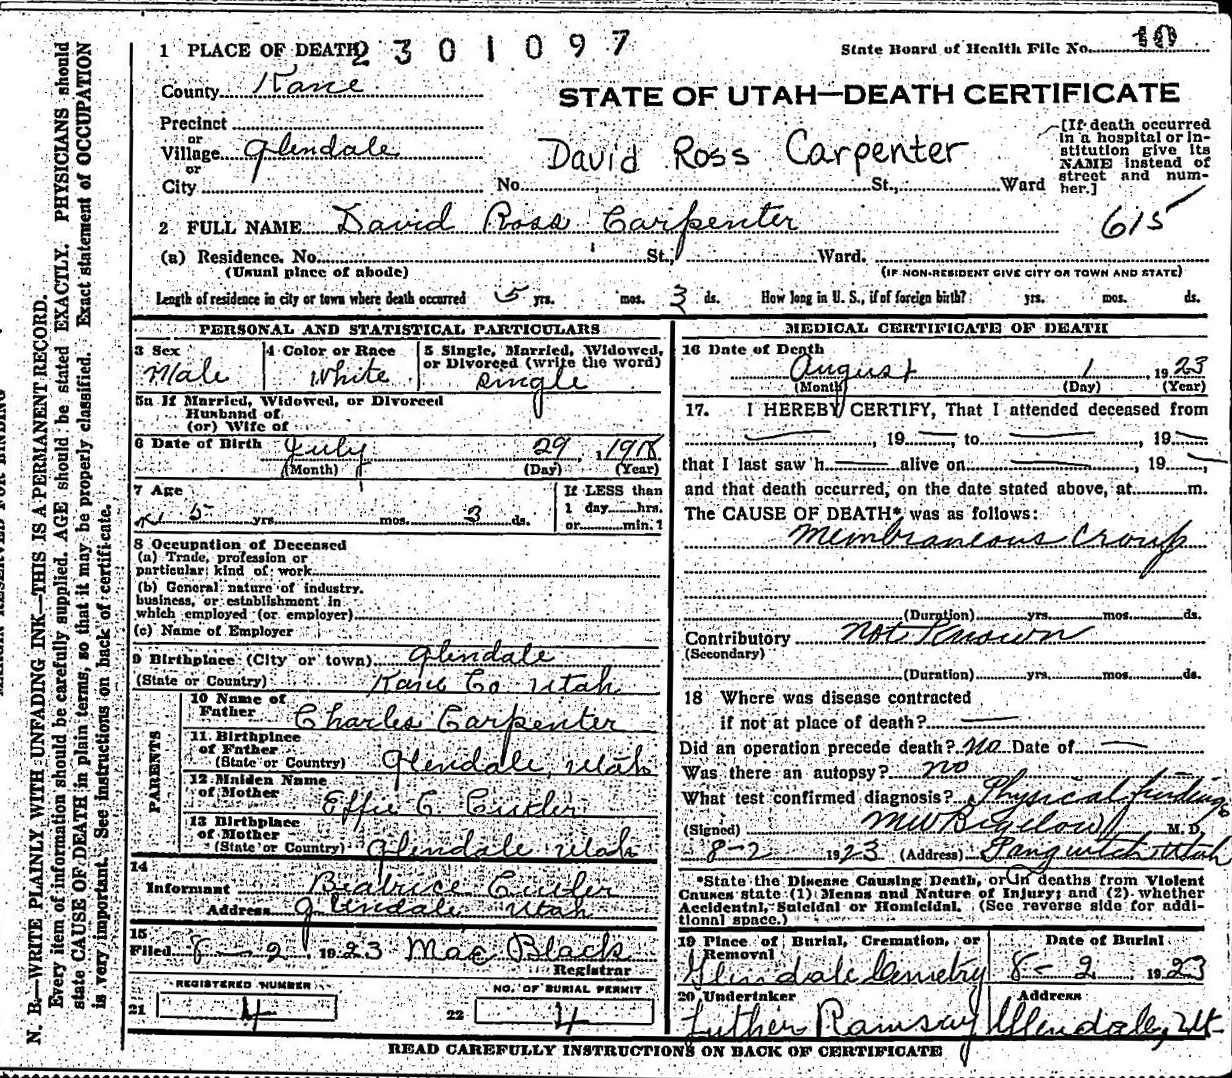 1 PLACE OF DEATH 2301097
State Board of Health File No. 10
County Kane
STATE OF UTAH—DEATH CERTIFICATE
Precinct
or
Village Glendale
or
City
David Ross Carpenter
No. St., Ward
[If death occurred
in a hospital or in-
stitution give its
NAME instead of
street and num-
ber.]
2 FULL NAME David Ross Carpenter
615
(a) Residence. No. St., Ward.
(Usual place of abode) (IF NON-RESIDENT GIVE CITY OR TOWN AND STATE)
Length of residence in city or town where death occurred 5 yrs. mos. 3 ds. How long in U. S., if of foreign birth? yrs. mos. ds.
PERSONAL AND STATISTICAL PARTICULARS
3 Sex
Male
4 Color or Race
White
5 Single, Married, Widowed,
or Divorced (write the word)
Single
5a If Married, Widowed, or Divorced
Husband of
(or) Wife of
6 Date of Birth July 29, 1918
(Month) (Day) (Year)
7 Age
5 yrs. mos. 3 ds.
If LESS than
1 day hrs.
or min.?
8 Occupation of Deceased
(a) Trade, profession or
particular kind of work
(b) General nature of industry,
business, or establishment in
which employed (or employer)
(c) Name of Employer
9 Birthplace (City or town) Glendale
(State or Country) Kane Co. Utah
PARENTS
10 Name of
Father Charles Carpenter
11 Birthplace
of Father
(State or Country) Glendale, Utah
12 Maiden Name
of Mother Effie C. Cutler
13 Birthplace
of Mother
(State or Country) Glendale Utah
14
Informant Beatrice Cutler
Address Glendale Utah
15
Filed 8-2 1923 Mae Black
Registrar
REGISTERED NUMBER
21 4
NO. OF BURIAL PERMIT
22 4
MEDICAL CERTIFICATE OF DEATH
16 Date of Death
August 1, 1923
(Month) (Day) (Year)
17. I HEREBY CERTIFY, That I attended deceased from
, 19 to , 19
that I last saw h alive on , 19
and that death occurred, on the date stated above, at m.
The CAUSE OF DEATH* was as follows:
Membraneous Croup
(Duration) yrs. mos. ds.
Contributory Not Known
(Secondary)
(Duration) yrs. mos. ds.
18 Where was disease contracted
if not at place of death?
Did an operation precede death? No Date of
Was there an autopsy? no
What test confirmed diagnosis? Physical findings
(Signed) MW Bigelow M. D.
8-2 1923 (Address) Panguitch, Utah
*State the Disease Causing Death, or in deaths from Violent
Causes state (1) Means and Nature of Injury; and (2) whether
Accidental, Suicidal or Homicidal. (See reverse side for addi-
tional space.)
19 Place of Burial, Cremation, or
Removal
Glendale Cemetry
Date of Burial
8-2 1923
20 Undertaker
Luther Ramsay
Address
Glendale, Ut
READ CAREFULLY INSTRUCTIONS ON BACK OF CERTIFICATE
N. B.—WRITE PLAINLY WITH UNFADING INK—THIS IS A PERMANENT RECORD.
Every item of information should be carefully supplied. AGE should be stated EXACTLY. PHYSICIANS should
state CAUSE OF DEATH in plain terms, so that it may be properly classified. Exact statement of OCCUPATION
is very important. See instructions on back of certificate.